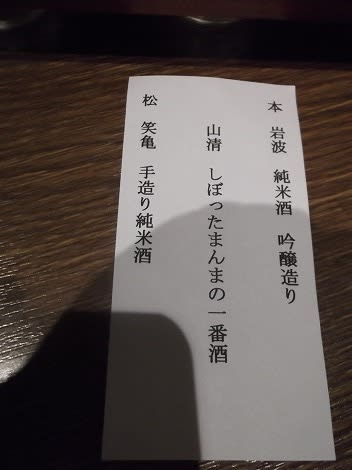 本　岩波　純米酒　吟醸造り
山清　しぼったまんまの一番酒
松　笑亀　手造り純米酒